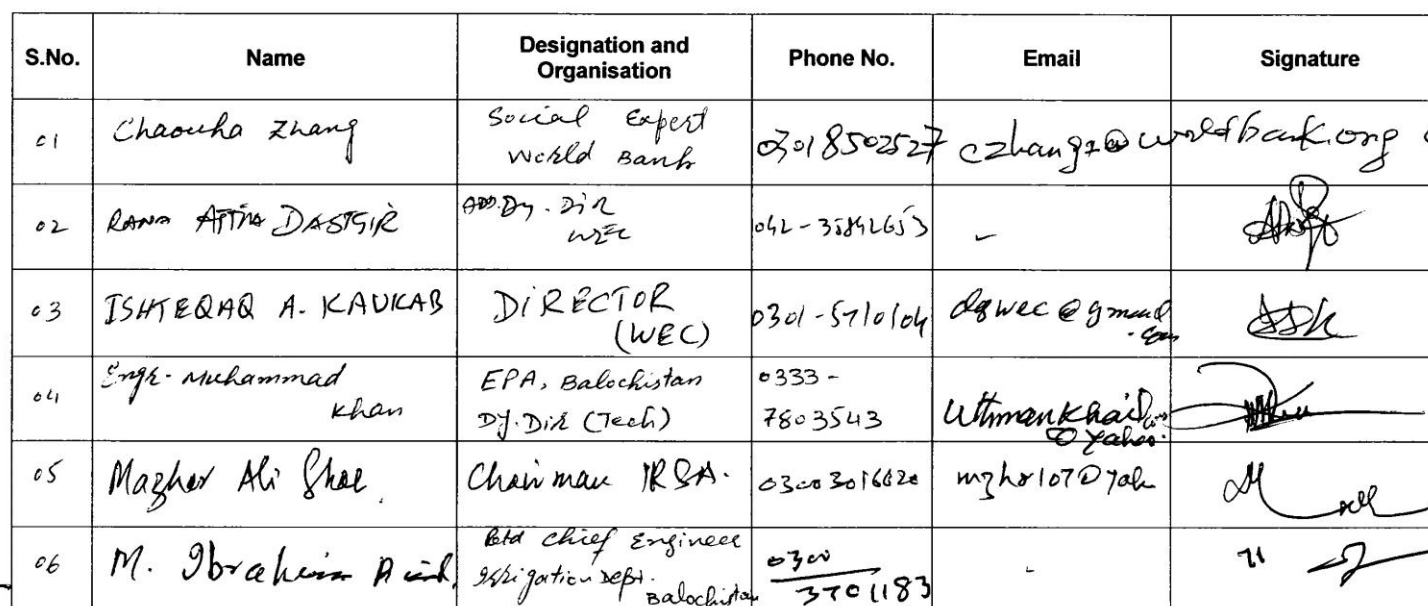 S.No. Name Designation and Organisation Phone No. Email Signature
01 Chaouha Zhang Social Expert World Bank 03018502527 czhang2@worldbank.org
02 RANA ATTIA DASTGIR ADD.Dy. Dir WEC 042-35842653 -
03 ISHTEQAQ A. KAUKAB DIRECTOR (WEC) 0301-5710104 dgwec@gmail.com
04 Engr. Muhammad Khan EPA, Balochistan Dy. Dir (Tech) 0333-7803543 @yahoo.
05 Mazhar Ali Shah. Chairman IRSA. 03003016620
06 M. Ibrahim Rind. Retd Chief Engineer Irrigation Dept. Balochistan 0300 3701183 -